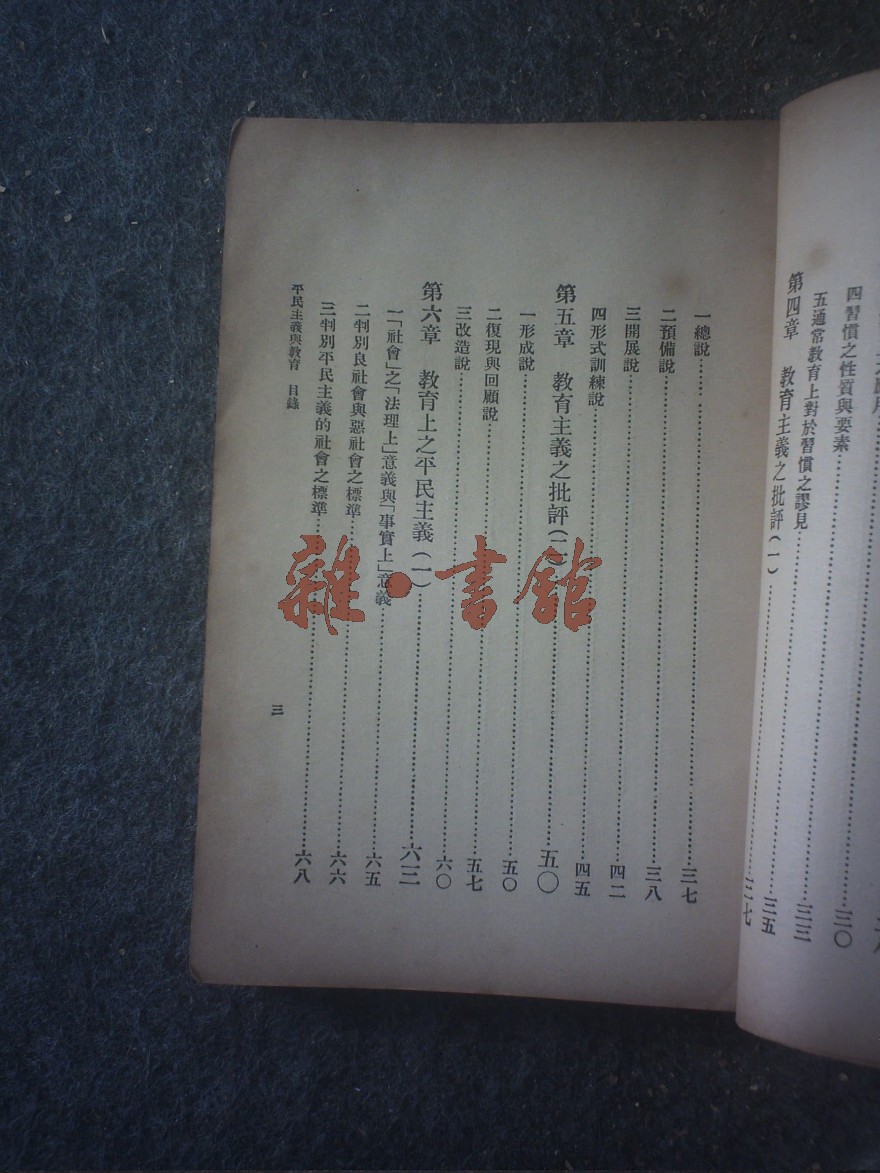 四習慣之性質與要素……三三
五通常教育上對於習慣之謬見……三五
第四章 教育主義之批評(一)……三七
一總說……三七
二預備說……三八
三開展說……四二
四形式訓練說……四五
第五章 教育主義之批評(二)……五〇
一形成說……五〇
二復現與回顧說……五七
三改造說……六〇
第六章 教育上之平民主義(一)……六三
一「社會」之「法理上」意義與「事實上」意義……六五
二判別良社會與惡社會之標準……六六
三判別平民主義的社會之標準……六八
平民主義與教育 目錄
三
雜·書館